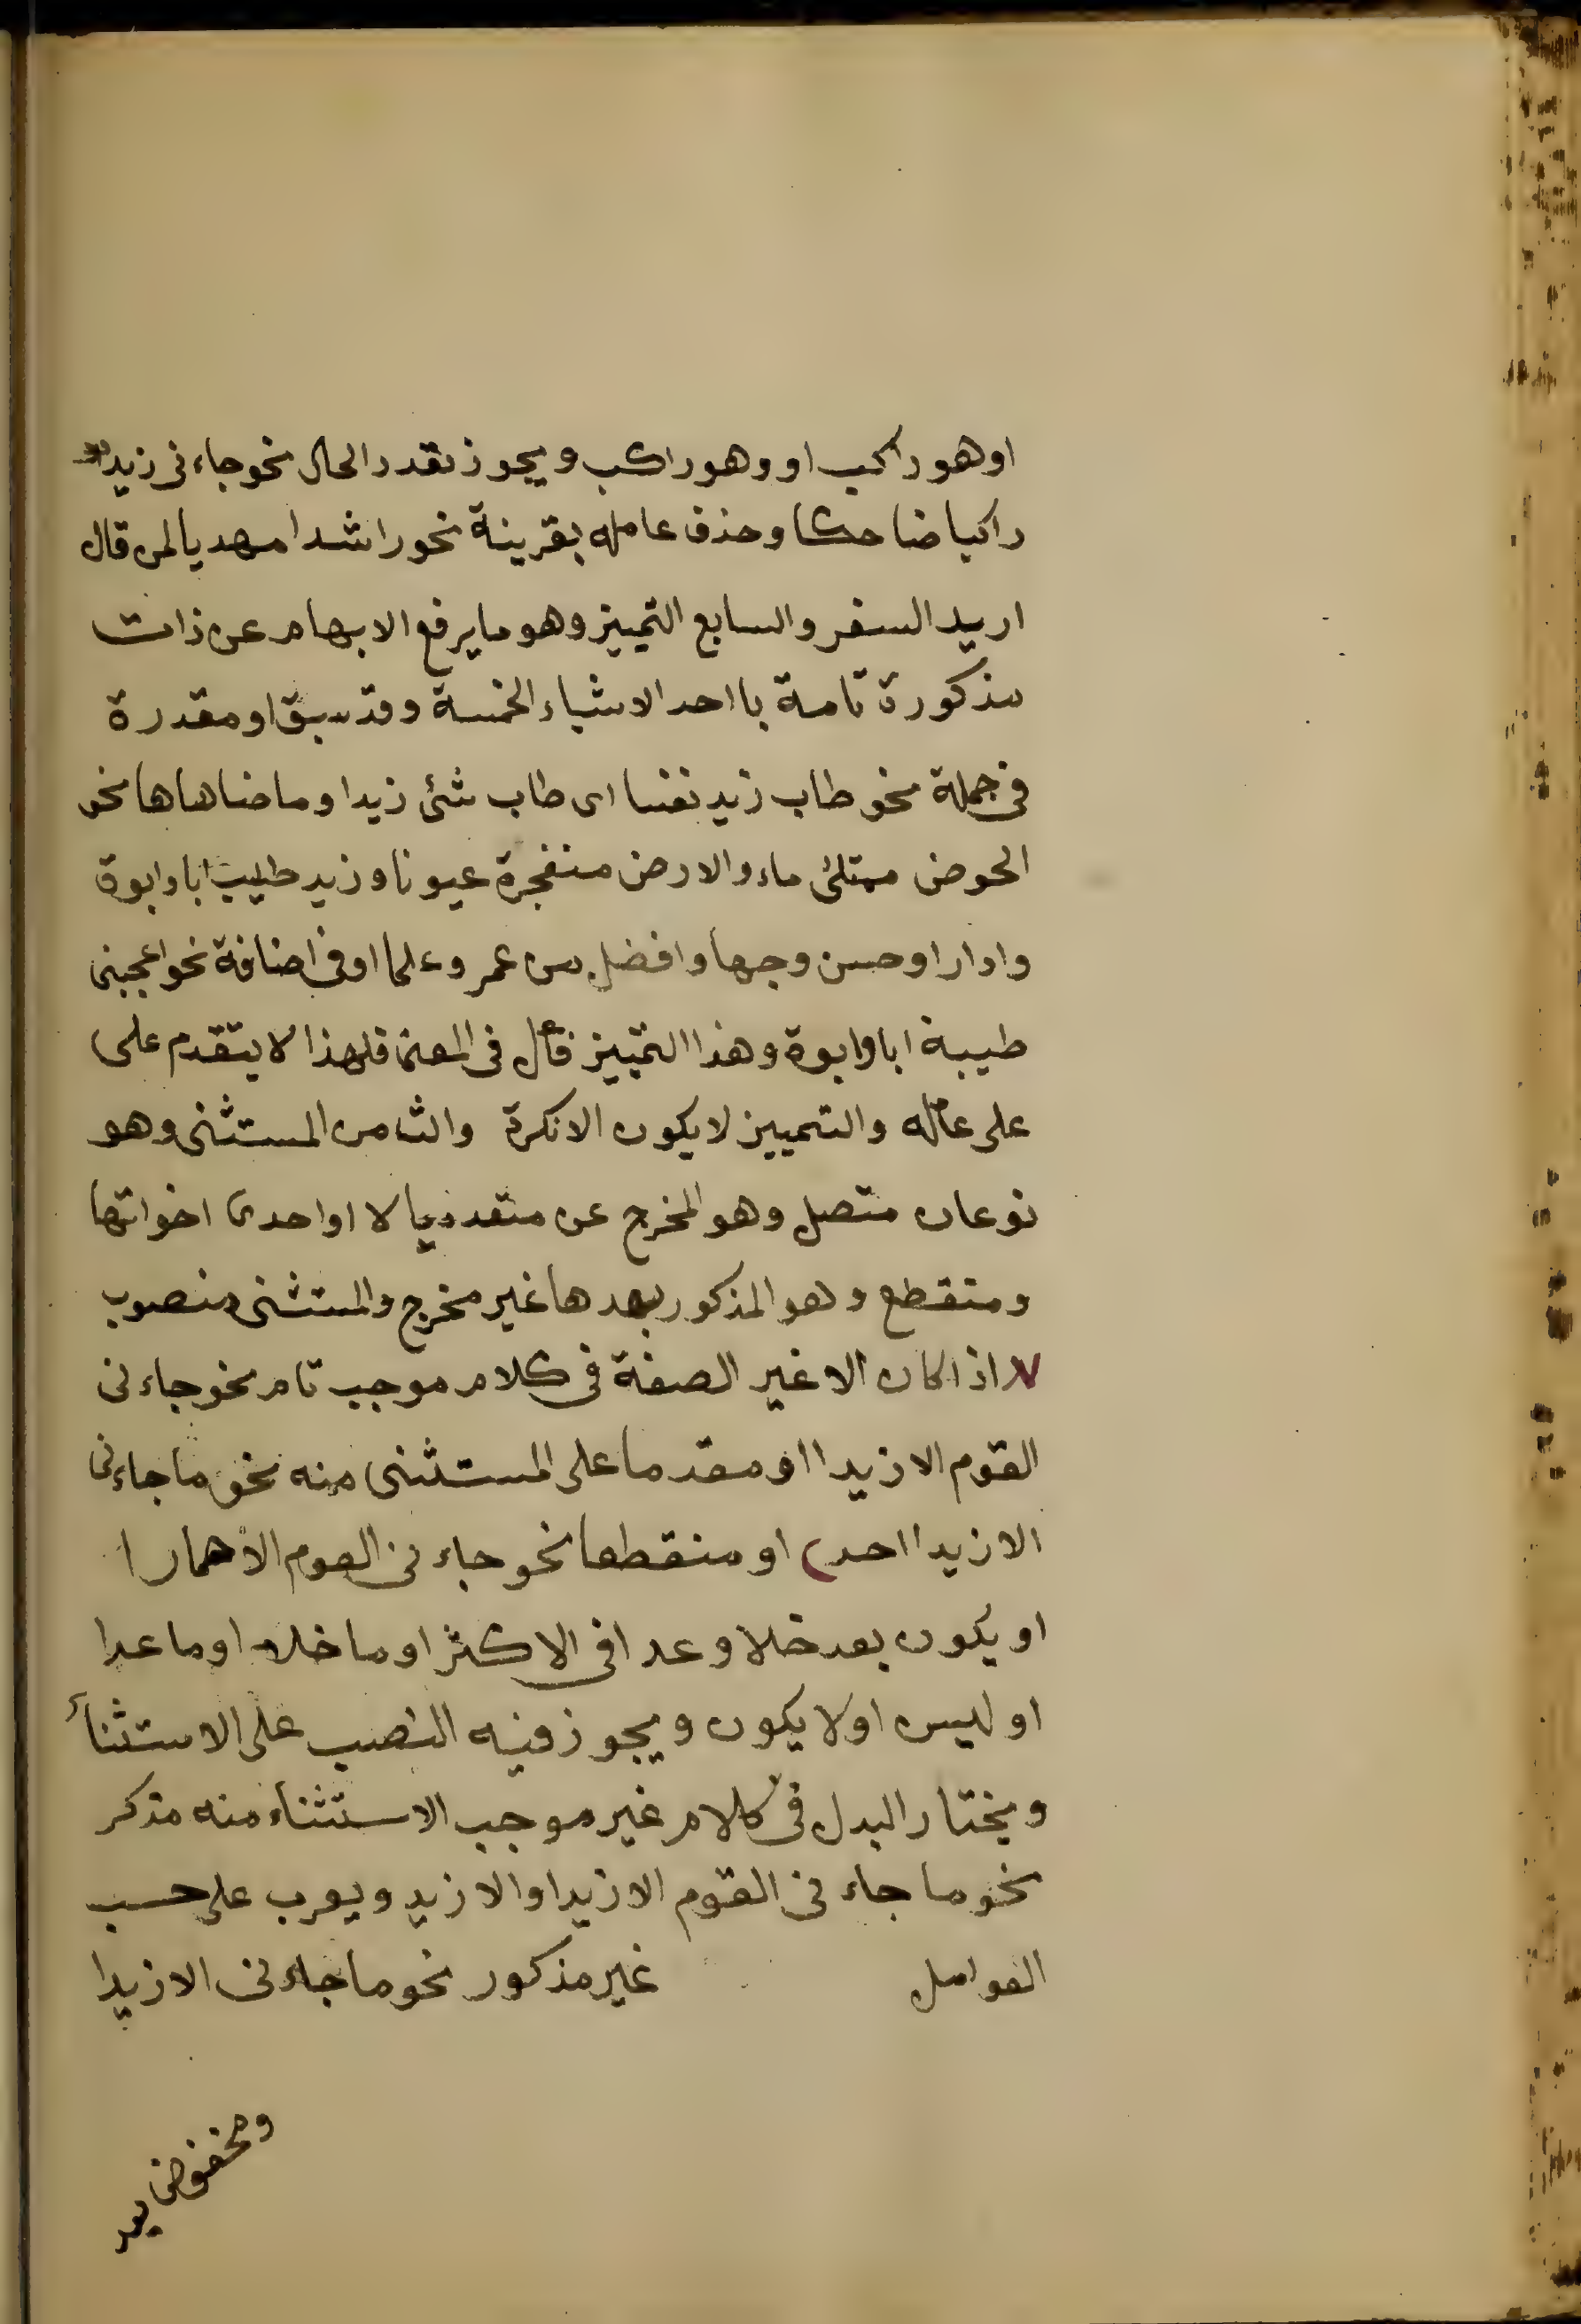 او هو راكب او وهو راكب ويجوز تعدد الحال نحو جاءنى زيد
راكبا ضاحكا وحذف عامله بقرينة نحو راشدا مهديا لمن قال
اريد السفر والسابع التمييز وهو ما يرفع الابهام عن ذات
مذكورة تامة با احد الاشياء الخمسة وقد سبق او مقدرة
فى جملة نحو طاب زيد نفسا اى طاب شئ زيدا وما ضاهاها نحو
الحوض ممتلئ ماء والارض منفجرة عيونا وزيد طيب ابا وابوة
وادارا وحسن وجها وافضل من عمرو علما او فى اضافة نحو اعجبنى
طيبة ابا وابوة وهذا التمييز فاعل فى المعنى فلهذا لا يتقدم على
على عامله والتمييز لا يكون الا نكرة والثامن المستثنى وهو
نوعان متصل وهو المخرج عن متعدد بالا او احدى اخواتها
ومنقطع وهو المذكور بعدها غير مخرج والمستثنى منصوب
اذا كان الا غير الصفة فى كلام موجب تام نحو جاءنى
القوم الا زيدا او مقدما على المستثنى منه نحو ما جاءنى
الا زيدا احد او منقطعا نحو جاءنى القوم الا حمارا
او يكون بعد خلا وعدا فى الاكثر او ما خلا او ما عدا
او ليس او لا يكون ويجوز فيه النصب على الاستثنأ
ويختار البدل فى كلام غير موجب الاستثناء منه مذكر
نحو ما جاءنى القوم الا زيدا والا زيد ويعرب على حسب
العوامل غير مذكور نحو ما جاءنى الا زيدا
ومخفوض بعد